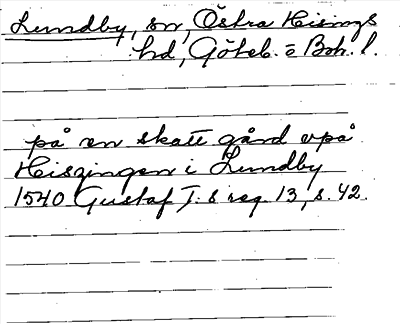 Lundby, sn, Östra Hisings
hd, Göteb. o Boh. l.
på en skatt gård vpå
Hiszingen i Lundby
1540 Gustaf I:s reg. 13, s. 42.